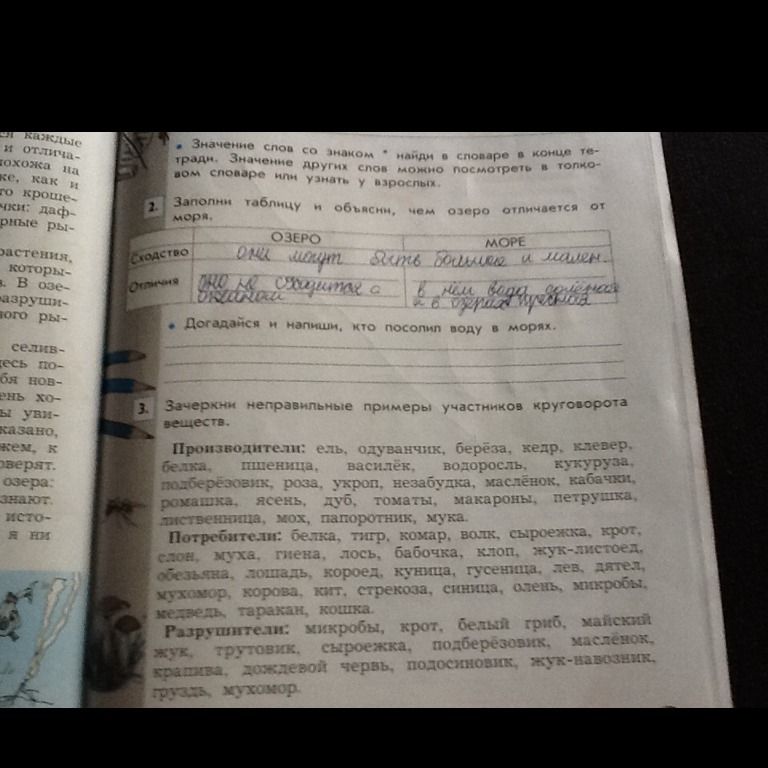 ся каждые
и отлича-
похожа на
ке, как и
го кроше-
чки: даф-
рные ры-
растения,
которы-
в. В озе-
разруши-
ного ры-
селив-
десь по-
бя нов-
ень хо-
ы уви-
казано,
жем, к
оверят.
озера:
знают.
исто-
я ни
• Значение слов со знаком * найди в словаре в конце те-
тради. Значение других слов можно посмотреть в толко-
вом словаре или узнать у взрослых.
2. Заполни таблицу и объясни, чем озеро отличается от
моря.
ОЗЕРО МОРЕ
Сходство они могут быть большие и мален.
Отличия оно не сходится с океаном
в нём вода солёная а в озерах пресная
• Догадайся и напиши, кто посолил воду в морях.
3. Зачеркни неправильные примеры участников круговорота
веществ.
Производители: ель, одуванчик, берёза, кедр, клевер,
белка, пшеница, василёк, водоросль, кукуруза,
подберёзовик, роза, укроп, незабудка, маслёнок, кабачки,
ромашка, ясень, дуб, томаты, макароны, петрушка,
лиственница, мох, папоротник, мука.
Потребители: белка, тигр, комар, волк, сыроежка, крот,
слон, муха, гиена, лось, бабочка, клоп, жук-листоед,
обезьяна, лошадь, короед, куница, гусеница, лев, дятел,
мухомор, корова, кит, стрекоза, синица, олень, микробы,
медведь, таракан, кошка.
Разрушители: микробы, крот, белый гриб, майский
жук, трутовик, сыроежка, подберёзовик, маслёнок,
крапива, дождевой червь, подосиновик, жук-навозник,
груздь, мухомор.